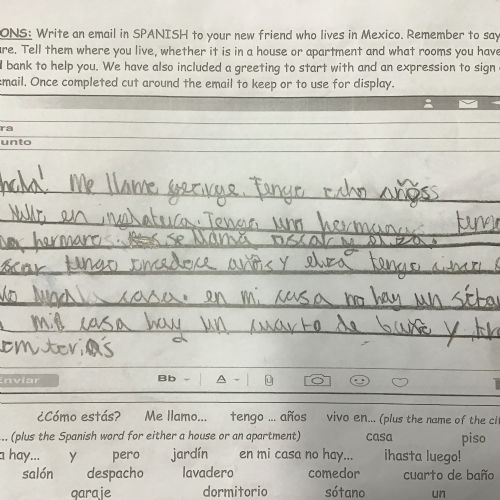 ONS: Write an email in SPANISH to your new friend who lives in Mexico. Remember to say
are. Tell them where you live, whether it is in a house or apartment and what rooms you have
bank to help you. We have also included a greeting to start with and an expression to sign
email. Once completed cut around the email to keep or to use for display.
ra
unto
hola! Me llame george. Tengo ocho añoss
en inglaterra. Tengo un hermana
hermaro se llama oscar y eliza.
oscar tengo años y eliza tengo cinco
casa. en mi casa no hay un sóta
mi casa hay un cuarto de baño y tre
Enviar
Bb A
¿Cómo estás? Me llamo... tengo ... años vivo en... (plus the name of the ci
... (plus the Spanish word for either a house or an apartment) casa piso
a hay... y pero jardín en mi casa no hay... ¡hasta luego!
salón despacho lavadero comedor cuarto de baño
garaje dormitorio sótano un